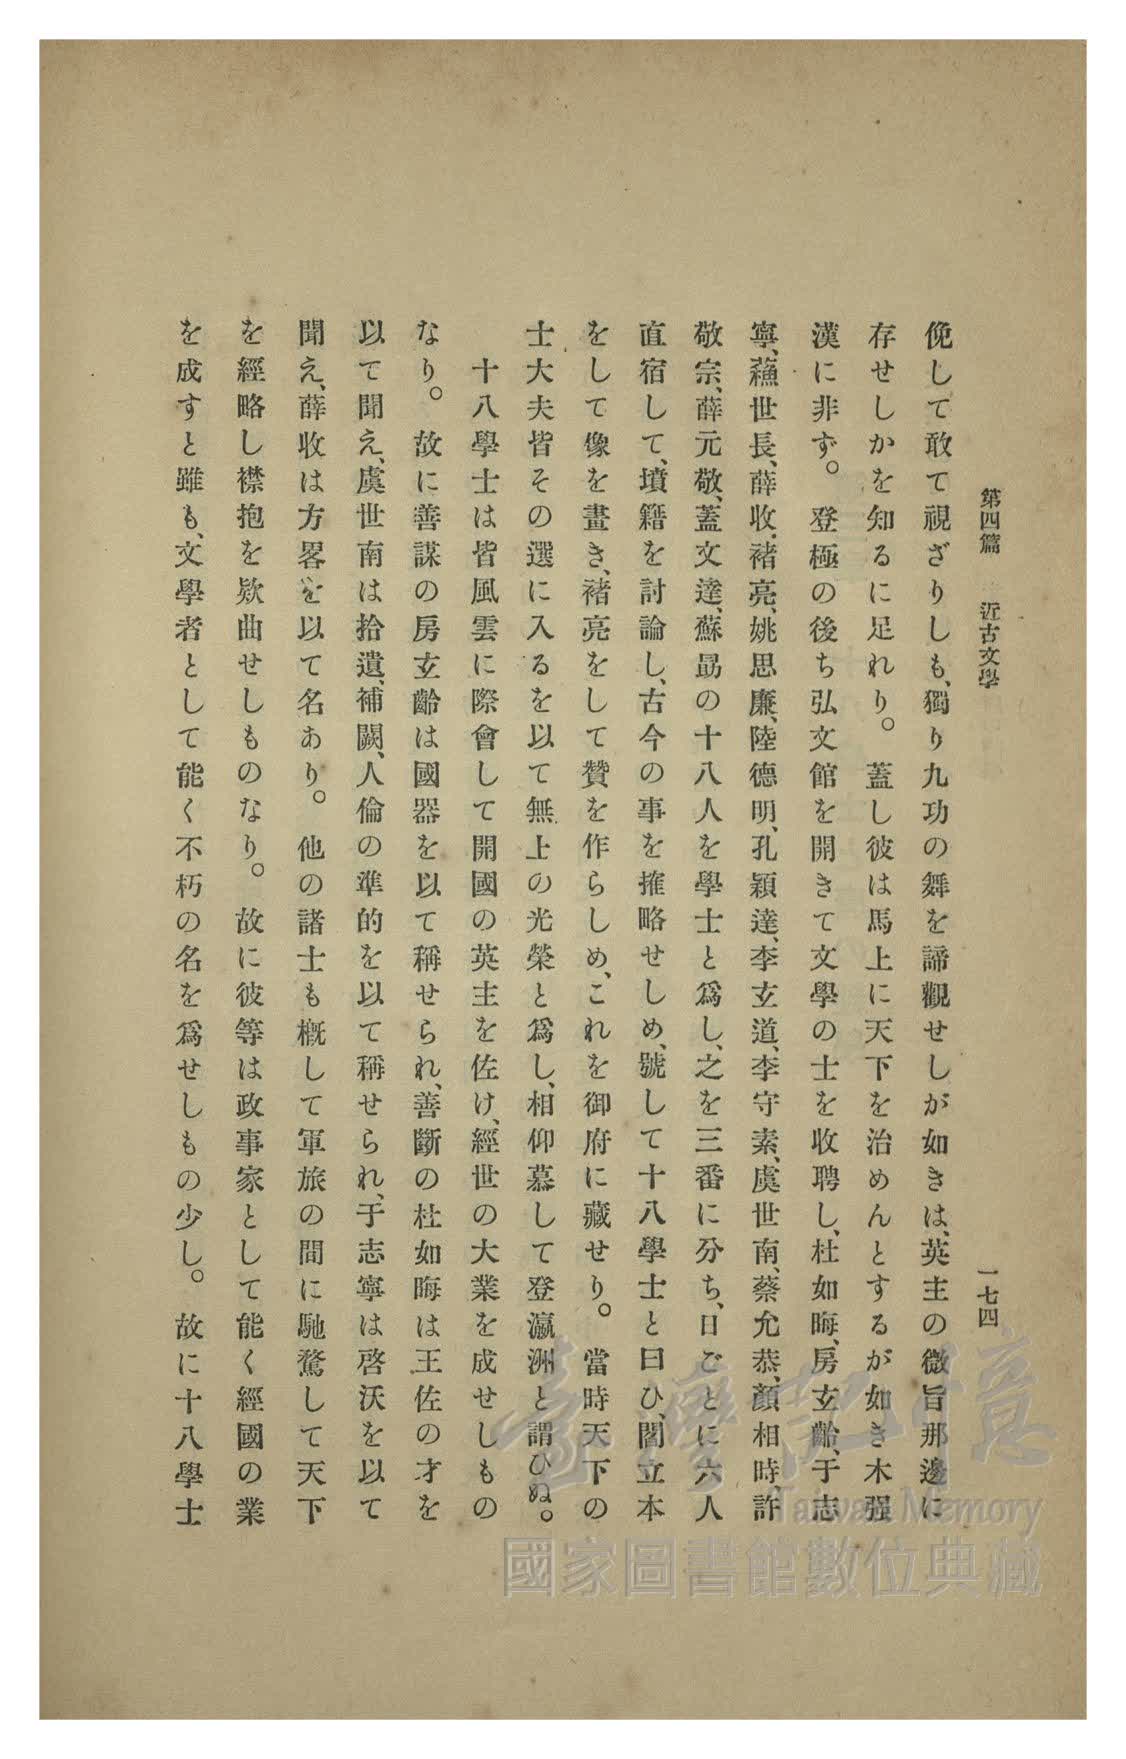 第四篇　近古文學
一七四
俛して敢て視ざりしも、獨り九功の舞を諦觀せしが如きは、英主の微旨那邊に
存せしかを知るに足れり。蓋し彼は馬上に天下を治めんとするが如き木强
漢に非ず。登極の後ち弘文館を開きて文學の士を收聘し、杜如晦、房玄齡、于志
寧、蘓世長、薛收、褚亮、姚思廉、陸德明、孔穎達、李玄道、李守素、虞世南、蔡允恭、顏相時、許
敬宗、薛元敬、蓋文達、蘇勗の十八人を學士と爲し、之を三番に分ち、日ごとに六人
直宿して、墳籍を討論し、古今の事を搉略せしめ、號して十八學士と曰ひ、閻立本
をして像を畫き、褚亮をして贊を作らしめ、これを御府に藏せり。當時天下の
士大夫皆その選に入るを以て無上の光榮と爲し、相仰慕して登瀛洲と謂ひぬ。
十八學士は皆風雲に際會して開國の英主を佐け、經世の大業を成せしもの
なり。故に善謀の房玄齡は國器を以て稱せられ、善斷の杜如晦は王佐の才を
以て聞え、虞世南は拾遺、補闕、人倫の準的を以て稱せられ、于志寧は啓沃を以て
聞え、薛收は方畧を以て名あり。他の諸士も槪して軍旅の間に馳騖して天下
を經略し襟抱を欵曲せしものなり。故に彼等は政事家として能く經國の業
を成すと雖も、文學者として能く不朽の名を爲せしもの少し。故に十八學士
臺灣記憶
Taiwan Memory
國家圖書館數位典藏